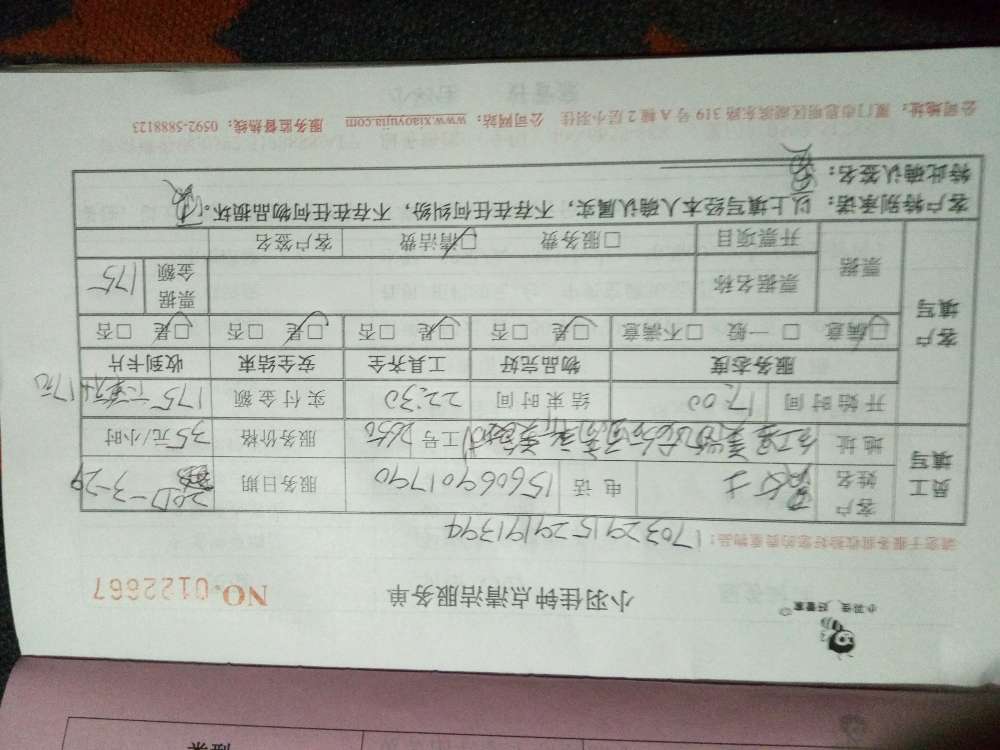 小羽佳 好管家
小羽佳钟点清洁服务单 NO.0122667
请您于服务前收拾好您的贵重物品: 170329152919139
员工填写 客户姓名 女士 电话 15606901790 服务日期 -3-29
地址 工号 2650 服务价格 35元/小时
开始时间 17:00 结束时间 22:30 实付金额 175
客户填写 服务态度 物品完好 工具齐全 安全结束 收到卡片
☑满意 □一般 □不满意 ☑是 □否 ☑是 □否 ☑是 □否 ☑是 □否
票据 票据名称 票据金额 175
开票项目 □服务费 ☑清洁费 客户签名
客户特别承诺:以上填写经本人确认属实,不存在任何纠纷,不存在任何物品损坏。
特此确认签名:
公司地址:厦门市思明区湖滨东路319号A幢2层小羽佳 公司网站:www.xiaoyujia.com 服务监督热线:0592-5888123